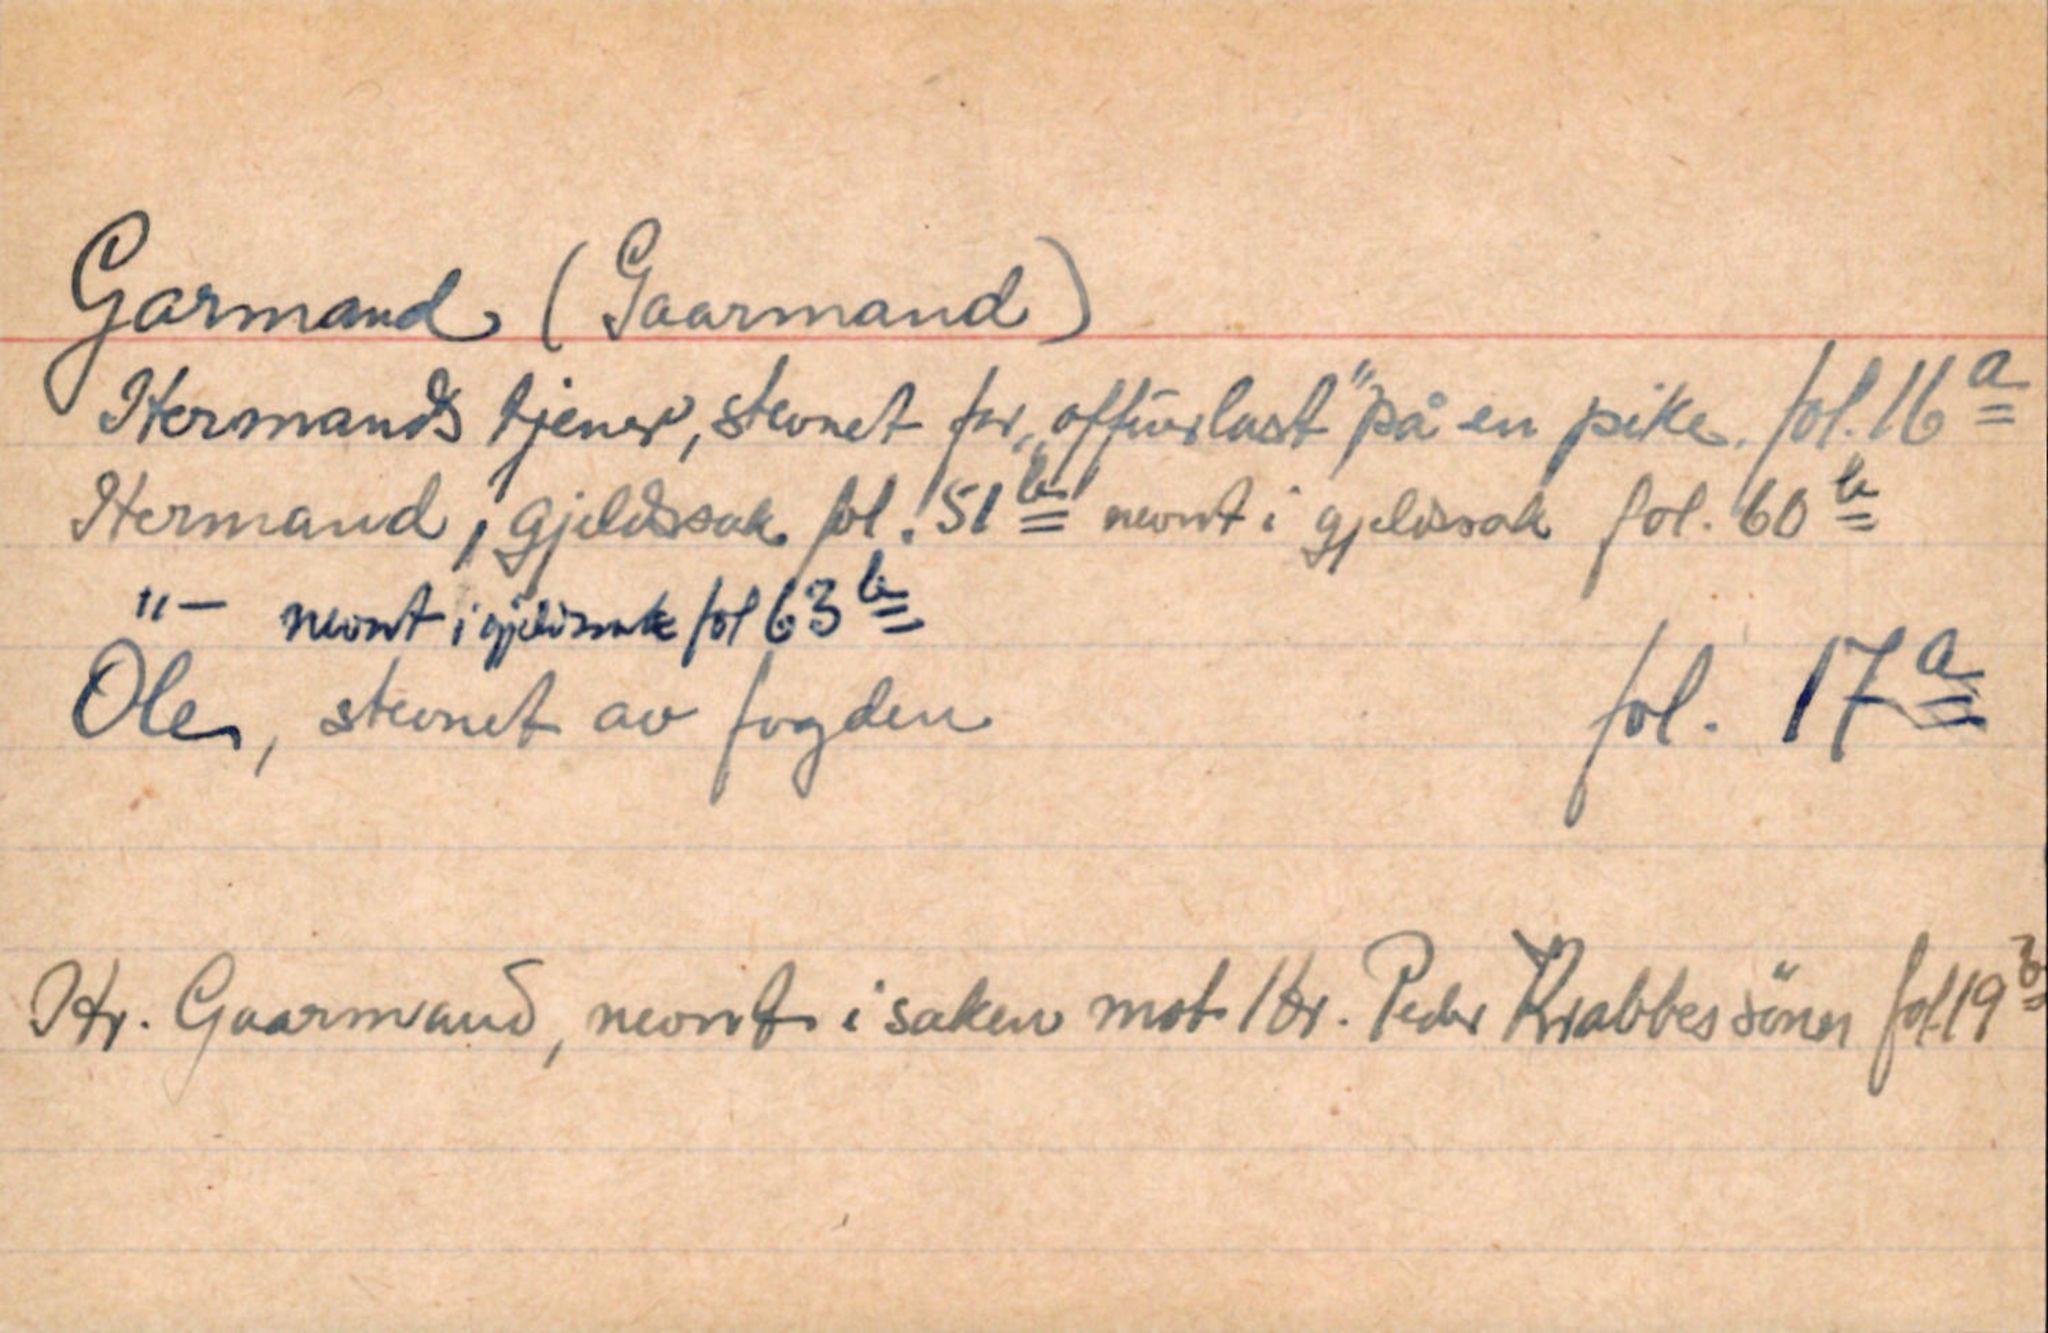 Garmand (Gaarmand)
Hermands tjener, stevnet for „offuerlast" på en pike. fol. 16a
Hermand, gjeldssak fol. 51b nevnt i gjeldssak fol. 60b
"– nevnt i gjeldssak fol 63b
Ole, stevnet av fogden fol. 17a
Hr. Gaarmand, nevnt i saken mot Hr. Peder Krabbes söner fol 19b